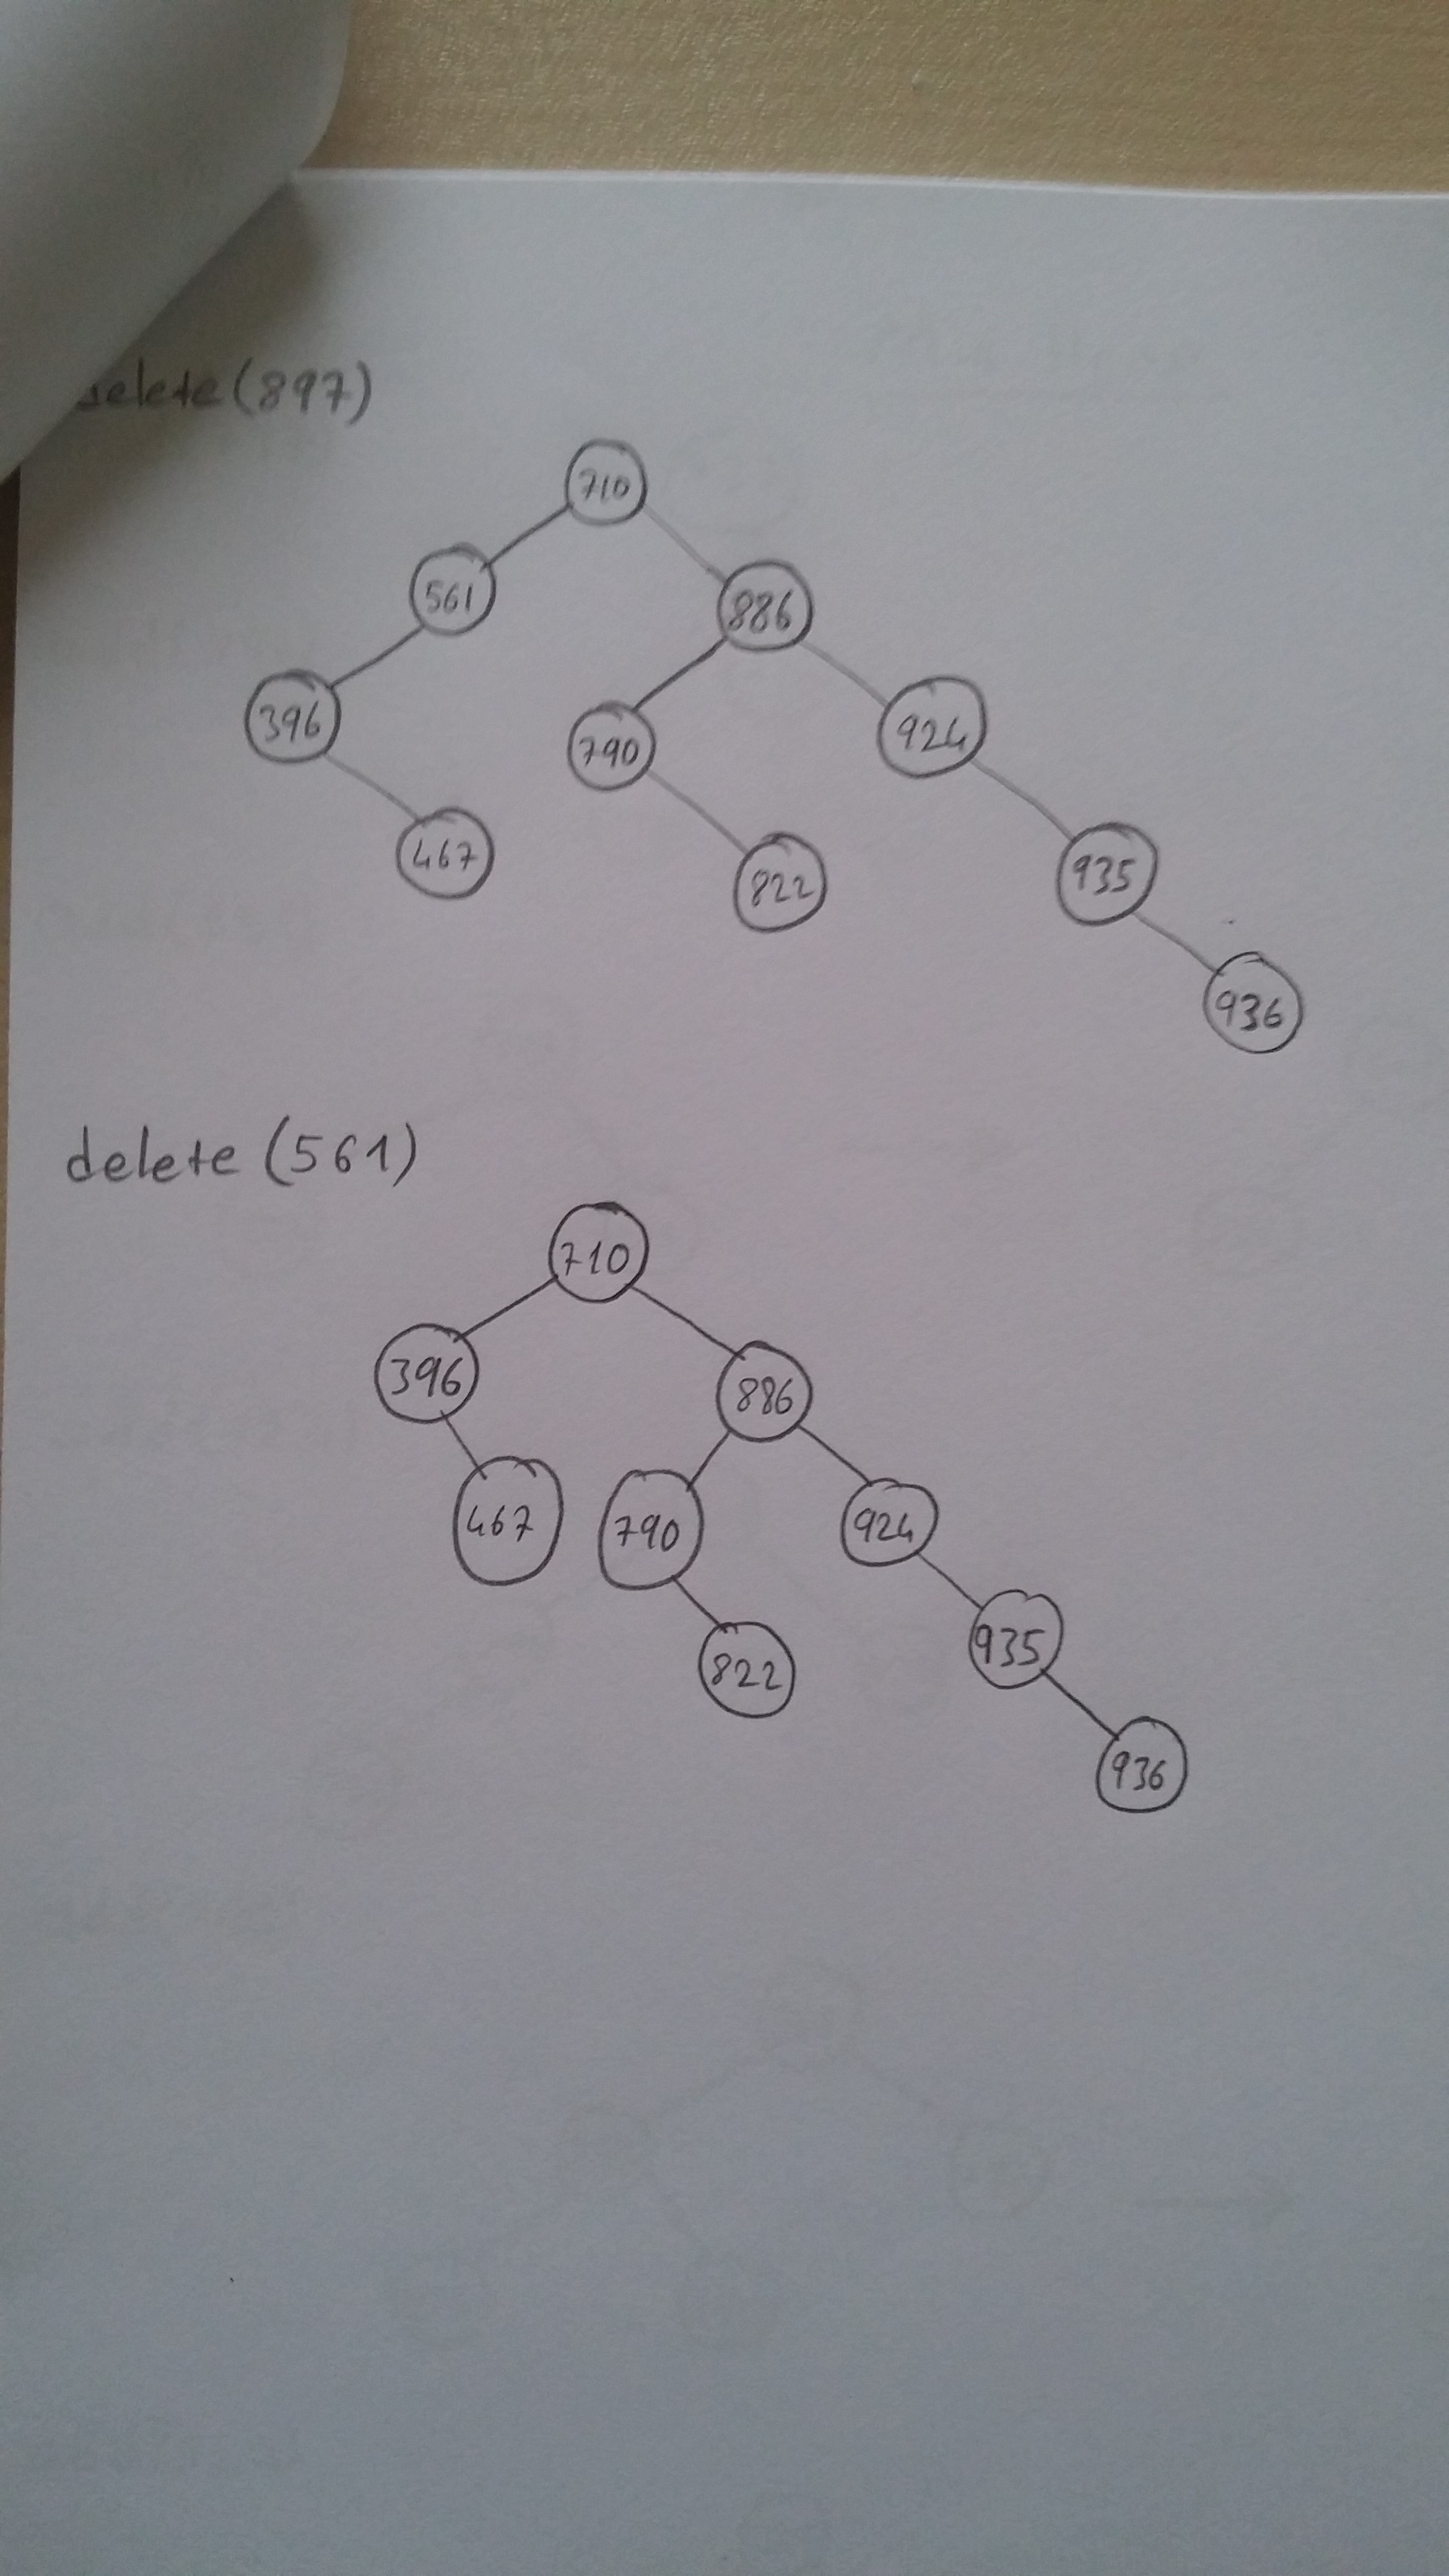 delete (897)
710
561
886
396
790
924
467
822
935
936
delete (561)
710
396
886
467 790 924
822
935
936